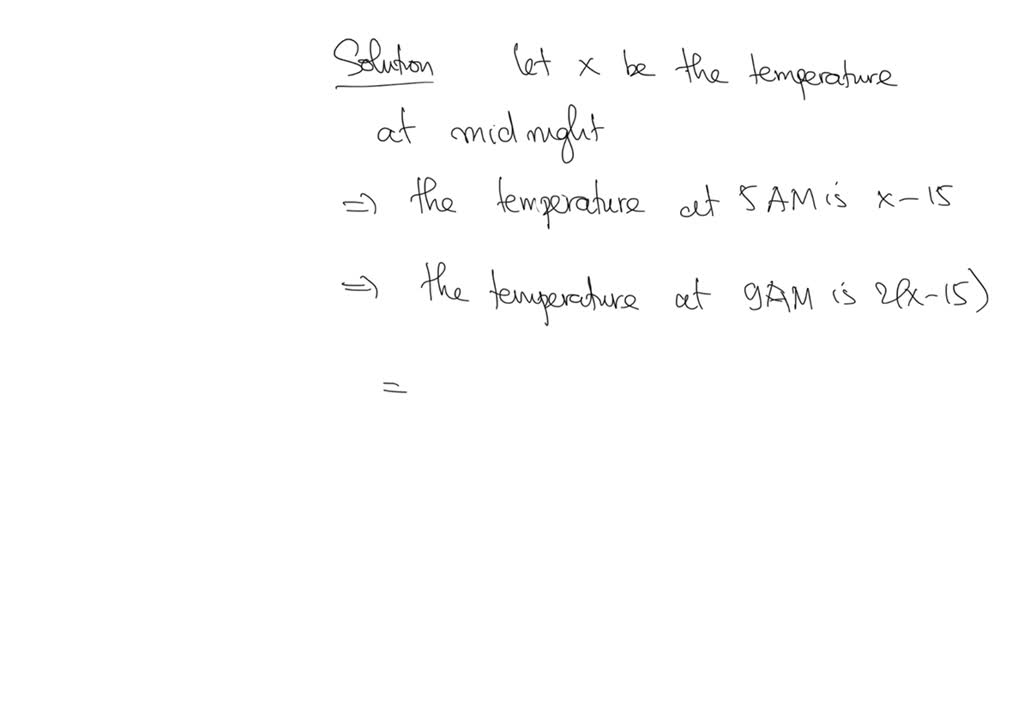 Solution let x be the temperature
at midnight
⇒ the temperature at 5 AM is x - 15
⇒ the temperature at 9AM is 2(x-15)
=